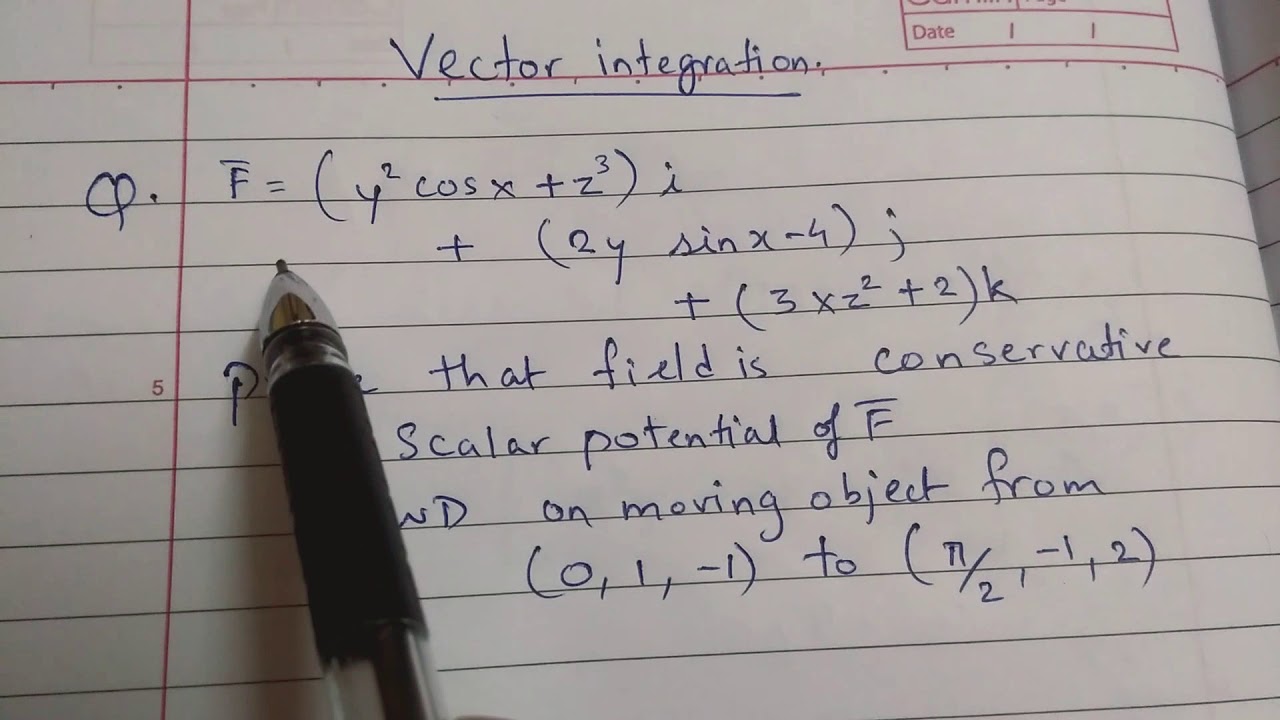 Date
Vector integration.
Q. F̅ = (y² cosx + z³) i
+ (2y sinx - 4) j
+ (3xz² + 2) k
5
that field is conservative
Scalar potential of F̅
on moving object from
(0, 1, -1) to (π/2, -1, 2)